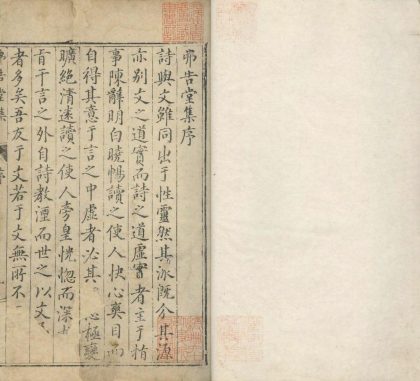 弗告堂集序
詩與文雖同出于性靈然其派既分其源
亦别文之道實而詩之道虛實者主于指
事陳辭明白曉暢讀之使人快心爽目而
自得其意于言之中虛者必其 心極變
曠絶清遠讀之使人旁皇恍惚而深
旨于言之外自詩教湮而世之以文
者多矣吾友于文若于文無所不
弗告堂集 序